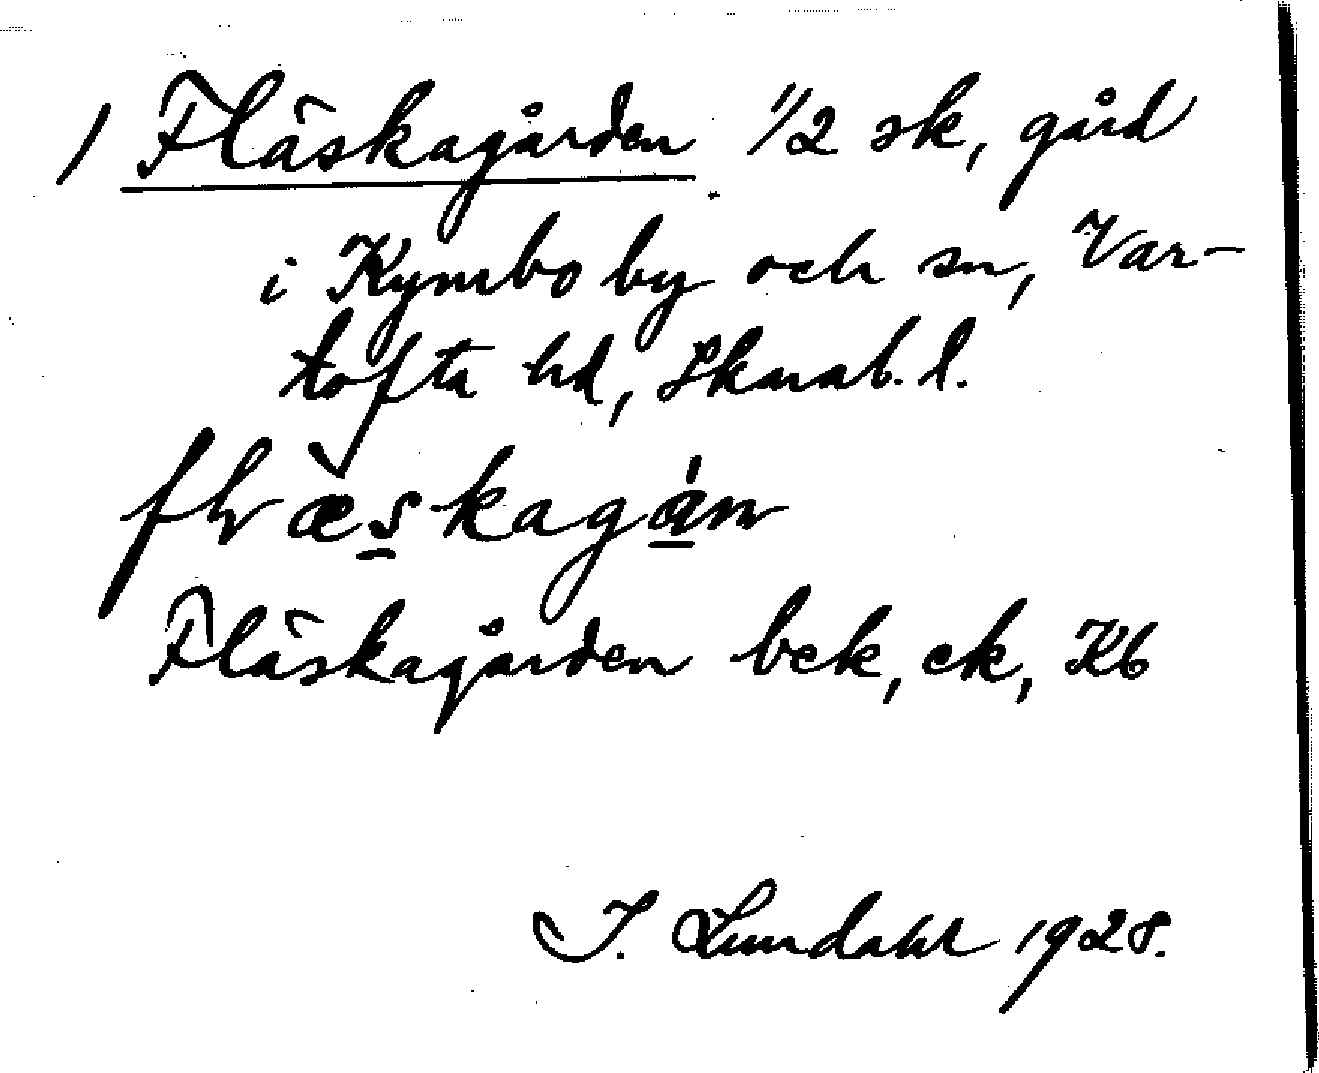 / Fläskagården 1/2 sk, gård
i Kymbo by och sn, Var-
tofta hd, Skarab. l.
flæ̀skagán
Fläskagården bek, ek, Kb
I. Lundahl 1928.